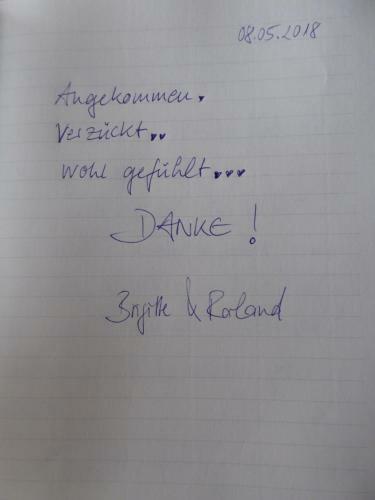 08.05.2018
Angekommen.
Verzückt..
Wohl gefühlt...
DANKE!
Brigitte & Roland